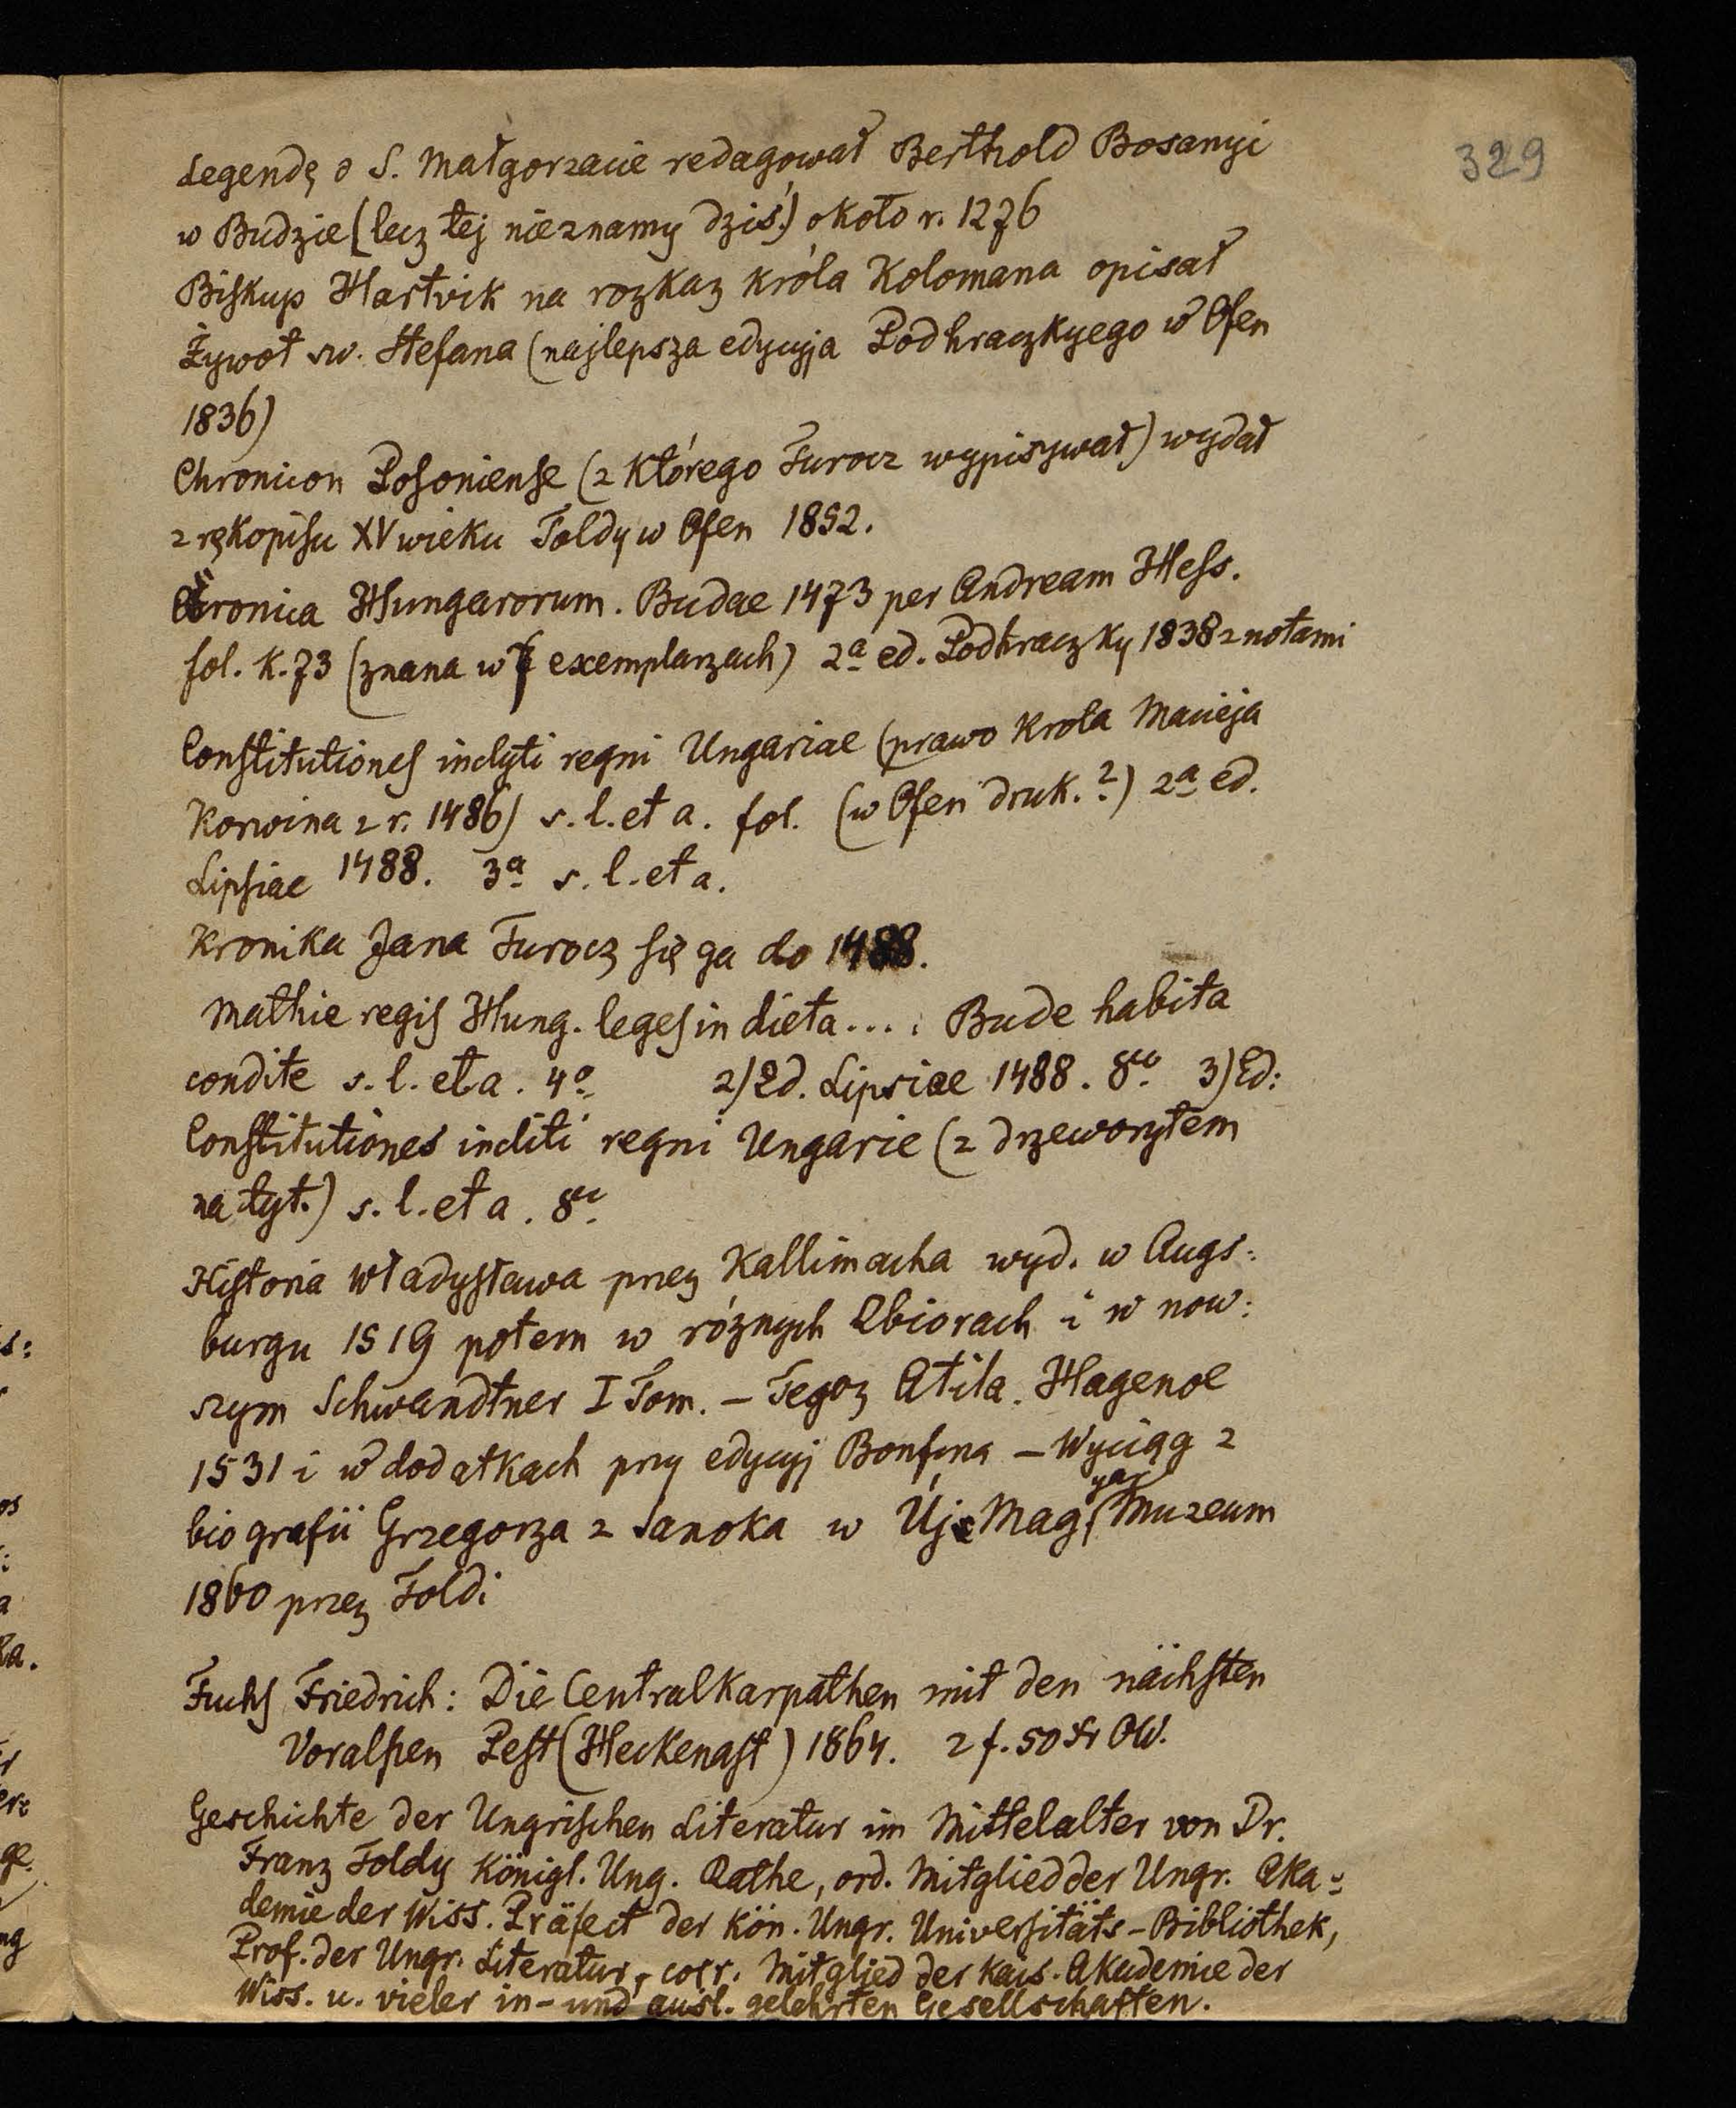 329
Legendę o S. Małgorzacie redagował Berthold Bosanyi
w Budzie (lecz tej nieznamy dziś) około r. 1276
Biskup Hartvik na rozkaz króla Kolomana opisał
Żywot sw. Stefana (najlepsza edycyja Podhraczkyego w Ofen
1836)
Chronicon Posoniense (z którego Turocz wypisywał) wydał
z rękopisu XV wieku Toldy w Ofen 1852.
Cronica Hungarorum. Budae 1473 per Andream Hess.
fol. k. 73 (znana w 7 exemplarzach) 2a ed. Podhraczky 1838 z notami
Constitutiones inclyti regni Ungariae (prawo Krola Macieja
Korwina z r. 1486) s. l. et a. fol. (w Ofen druk.?) 2a ed.
Lipsiae 1488. 3a s. l. et a.
Kronika Jana Turocz sięga do 1488.
Mathie regis Hung. leges in dieta.... Bude habita
condite s. l. et a. 4o 2) Ed. Lipsiae 1488. 8vo 3) Ed:
Constitutiones incliti regni Ungarie (z drzeworytem
na tyt.) s. l. et a. 8vo
Historia Władysława przez Kallimacha wyd. w Augs:
burgu 1519 potem w róznych Zbiorach i w now:
szym Schwandtner I Tom. – Tegoz Atila. Hagenoe
1531 i w dodatkach przy edycyj Bonfina – Wyciąg z
biografii Grzegorza z Sanoka w Új Magyar Muzeum
1860 przez Toldi
Fuchs Friedrich: Die Centralkarpathen mit den nächsten
Voralpen Pest (Heckenast) 1864. 2 f. 50 kr OW.
Geschichte der Ungrischen Literatur im Mittelalter von Dr.
Franz Toldy Königl. Ung. Rathe, ord. Mitglied der Ungr. Aka:
demie der Wiss. Präfect der kön. Ungr. Universitäts-Bibliothek,
Prof. der Ungr. Literatur, corr. Mitglied der kais. Akademie der
Wiss. u. vieler in- und ausl. gelehrten Gesellschaften.